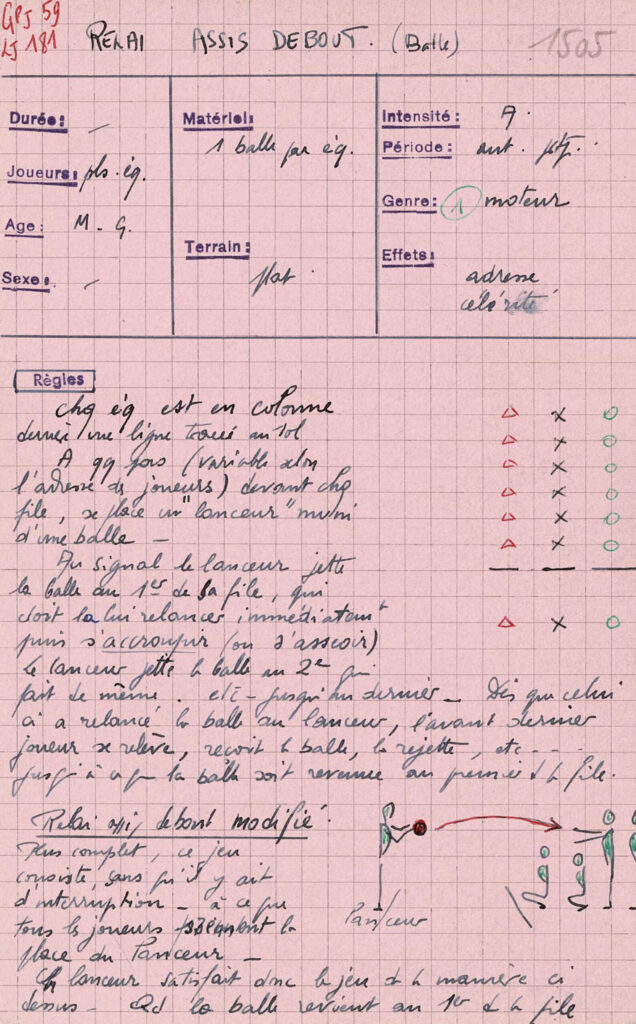 GPJ 59
LJ 181
RELAI ASSIS DEBOUT. (Balle)
1505
Durée: –
Joueurs: pls. éq.
Age: M - G.
Sexe: –
Matériel:
1 balle par éq.
Terrain:
plat
Intensité: A.
Période: ant. ptf.
Genre: 1 moteur
Effets:
adresse
célérité
Règles
chq éq est en colonne
derrière une ligne tracée au sol
A qq pas (variable selon
l'adresse des joueurs) devant chq
file, se place un "lanceur" muni
d'une balle –
Au signal le lanceur jette
la balle au 1er de sa file, qui
doit la lui relancer immédiatemt
puis s'accroupir (ou s'asseoir)
Le lanceur jette la balle au 2e qui
fait de même. etc - jusqu'au dernier – Dès que celui
ci a relancé la balle au lanceur, l'avant dernier
joueur se relève, reçoit la balle, la rejette, etc ---
jusqu'à ce que la balle soit revenue au premier de la file.
Relai assis debout modifié.
Plus complet, ce jeu
consiste, sans qu'il y ait
d'interruption – à ce que
tous les joueurs prennent la
place du lanceur –
lanceur
Ch lanceur satisfait donc le jeu de la manière ci
dessus – Qd la balle revient au 1er de la file